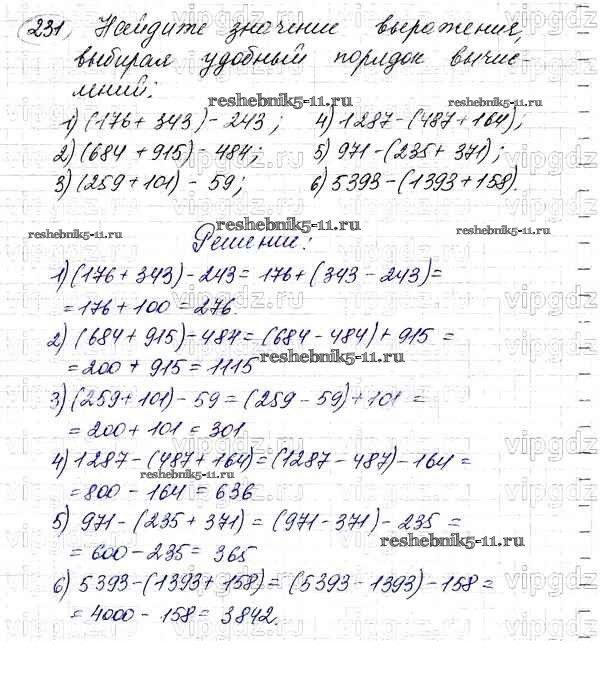 231. Найдите значение выражения,
выбирая удобный порядок вычис-
лений:
reshebnik5-11.ru
1) (176 + 343) - 243; 4) 1287 - (487 + 164);
2) (684 + 915) - 484; 5) 971 - (235 + 371);
3) (259 + 101) - 59; 6) 5393 - (1393 + 158).
reshebnik5-11.ru reshebnik5-11.ru reshebnik5-11.ru
Решение:
1) (176 + 343) - 243 = 176 + (343 - 243) =
= 176 + 100 = 276.
2) (684 + 915) - 484 = (684 - 484) + 915 =
= 200 + 915 = 1115
reshebnik5-11.ru
3) (259 + 101) - 59 = (259 - 59) + 101 =
= 200 + 101 = 301.
4) 1287 - (487 + 164) = (1287 - 487) - 164 =
reshebnik5-11.ru
= 800 - 164 = 636
5) 971 - (235 + 371) = (971 - 371) - 235 =
reshebnik5-11.ru
= 600 - 235 = 365
6) 5393 - (1393 + 158) = (5393 - 1393) - 158 =
= 4000 - 158 = 3842.